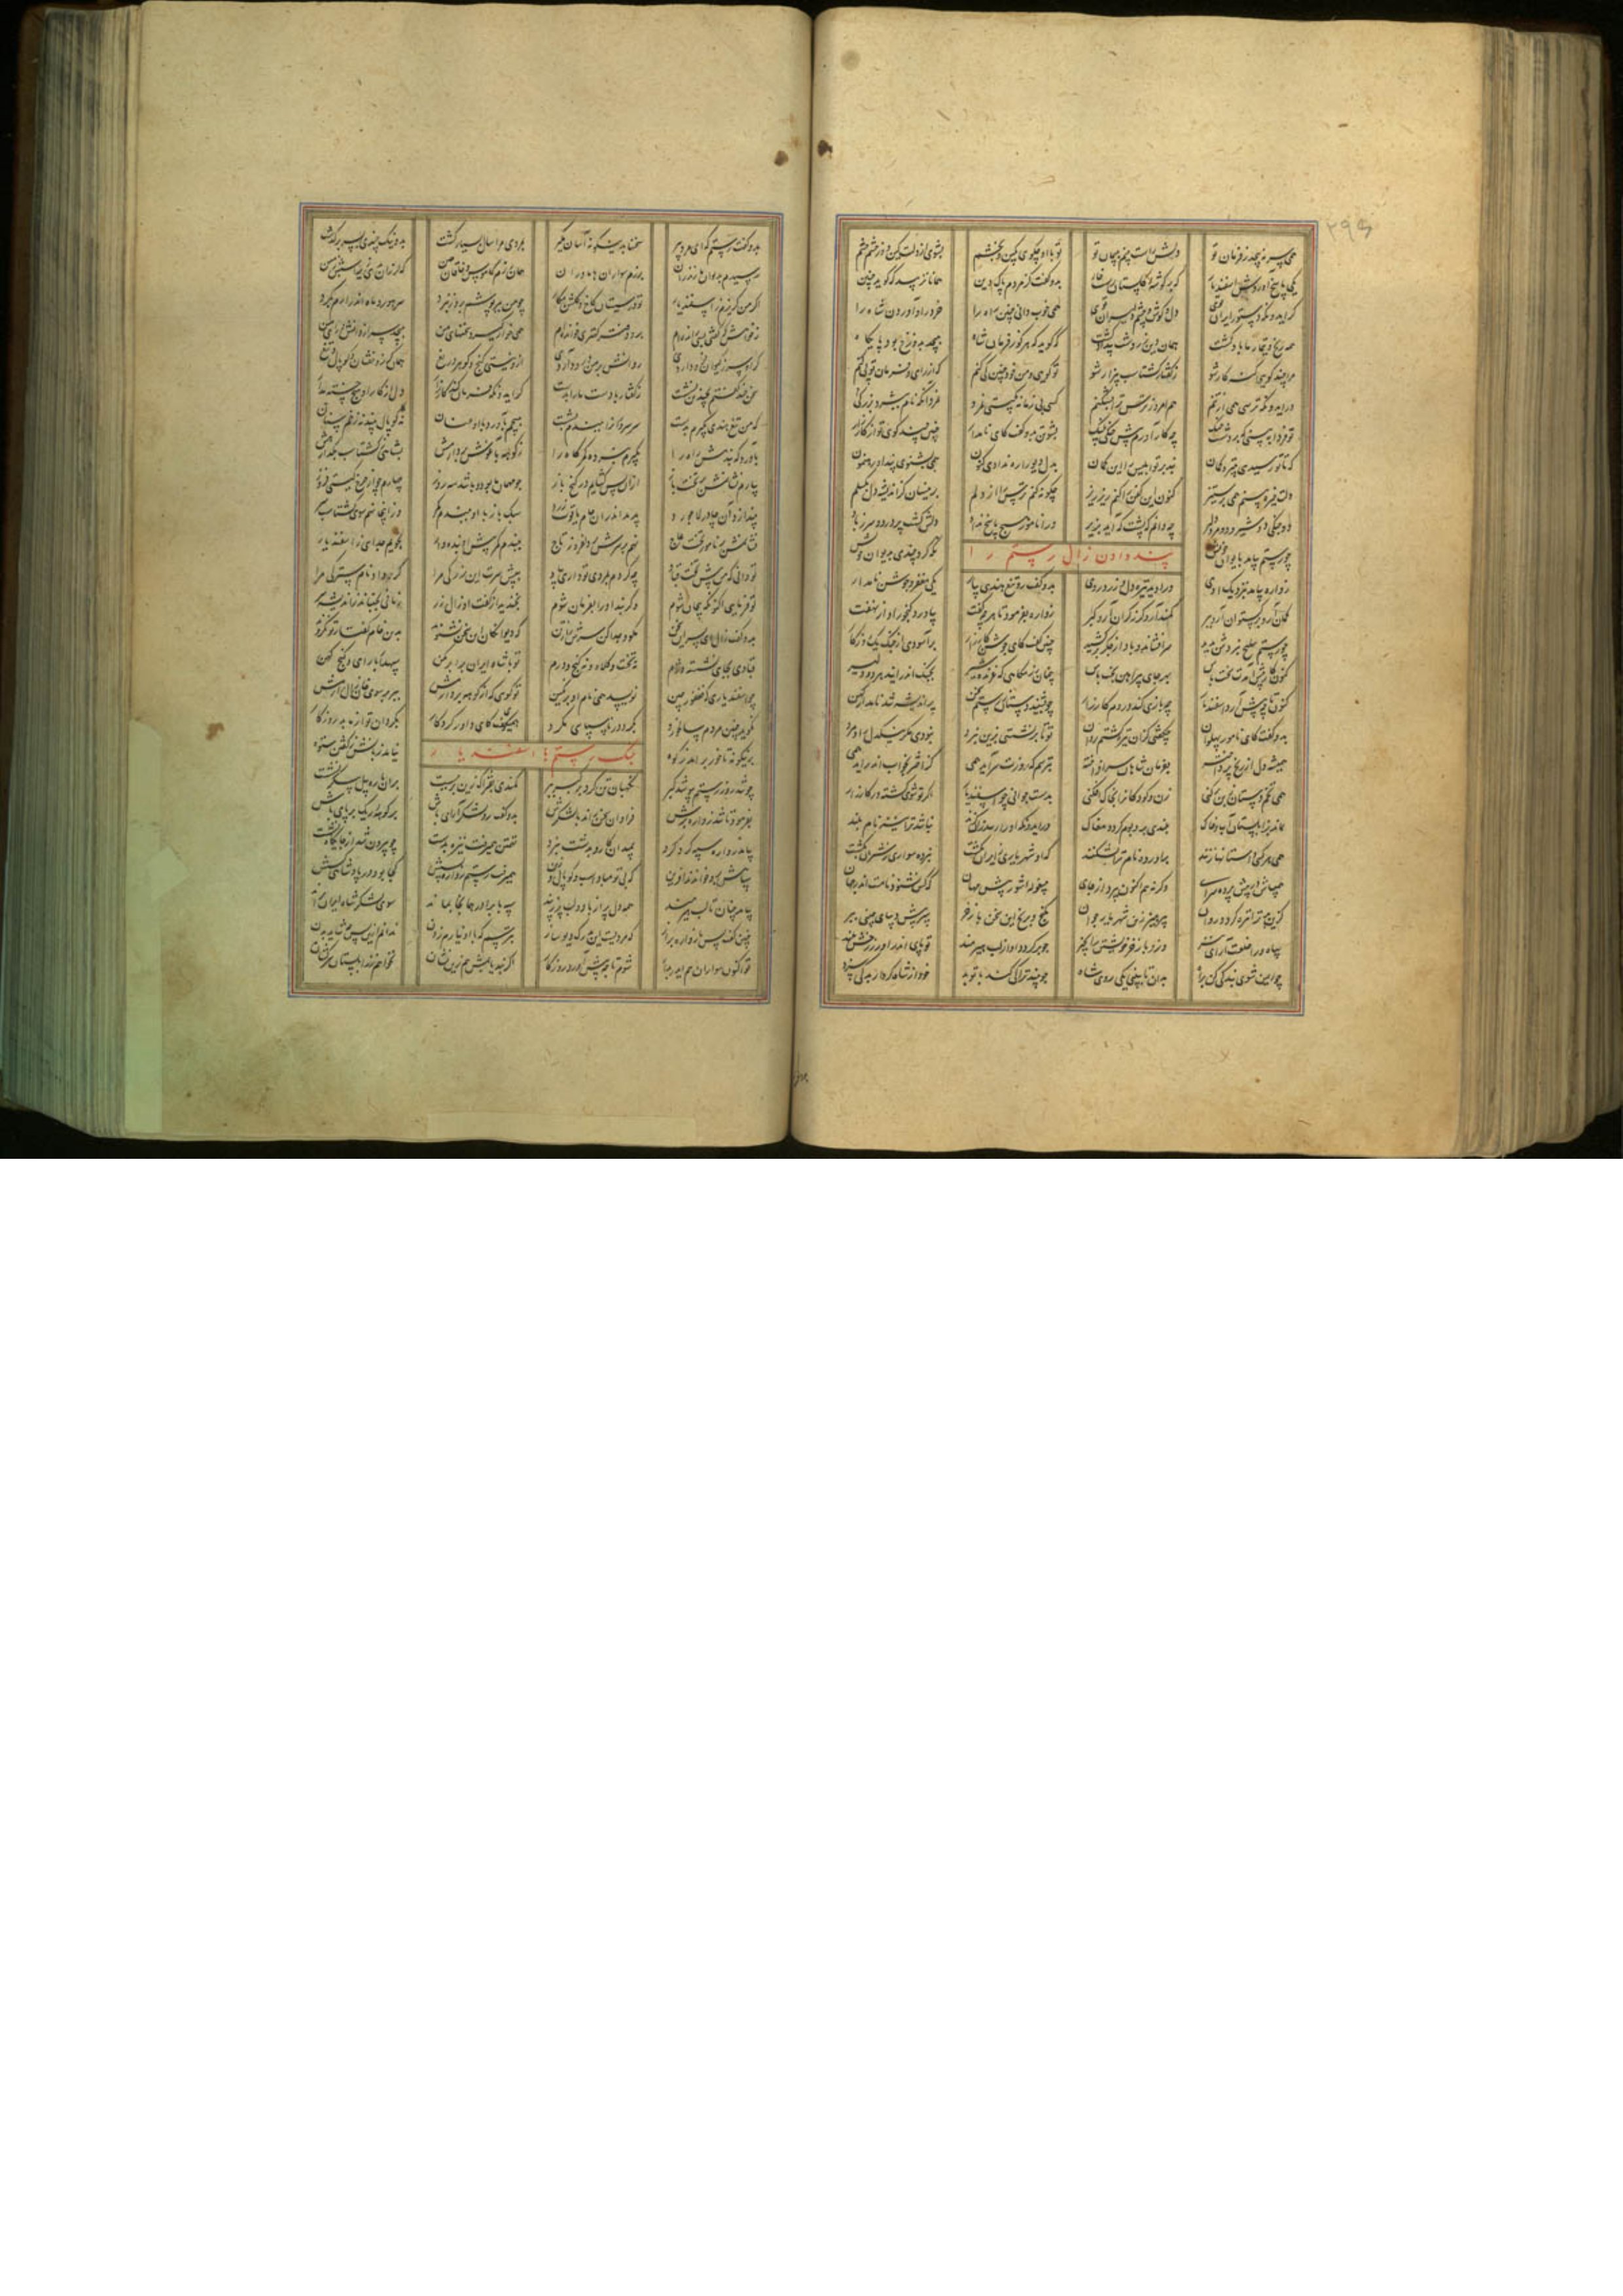 همی سر نپیچد ز فرمان تو دلش راست بینم به پیمان تو تو با او چه گویی بکین و بخشم بشوی از دلت کین وز خشم چشم
یکی پاسخ آوردش اسفندیار که بر گوشه گلستان رست خار بدو گفت کز مردم پاک دین همانا نزیبد که گوید چنین
گر ایدونکه دستور ایران توی دل و گوش و چشم دلیران توی همی خوب دانی چنین راه را خرد را و آوردن شاه را
همه رنج و تیمار ما باد گشت همان دین زردشت بیداد گشت که گوید که هر کو ز فرمان شاه بپیچد بدوزخ بود پایگاه
مرا چند گویی گنه کار شو ز گفتار گشتاسب بیزار شو تو گویی و من خود چنین کی کنم که از رای و فرمان تو پی کنم
ور ایدونکه ترسی همی از تنم هم امروز ترس ترا بشکنم کسی بی زمانه بگیتی نمرد نمرد آنکه نام بزرگی
تو فردا ببینی که بر دشت جنگ چه کار آورم پیش جنگی پلنگ پشوتن بدو گفت کای نامدار چنین چند گویی تو از کارزار
که تا تو رسیدی بتیر و کمان نبد بر تو ابلیس را این گمان بدل دیو را راه دادی کنون همی نشنوی پند این رهنمون
دلت خیره بینم همی پر ستیز کنون این کفن را کنم ریز ریز چگونه کنم ترس را از دلم بدینسان کز اندیشه دل بگسلم
دو جنگی دو شیر و دو مرد دلیر چه دانم که پشت که آید بزیر ورا نامور هیچ پاسخ نداد دلش گشت پر درد و سر پر ز باد
چو رستم بیامد بایوان خویش نگه کرد چندی بدیوان خویش
پند دادن زال رستم را
زواره بیامد بنزدیک اوی ورا دید تیره دل و زرد روی بدو گفت رو تیغ هندی بیار یکی مغفر و جوشن نامدار
کمان آر و برگستوان آر و ببر کمند آر و گرز گران آر و گبر زواره بفرمود تا هر چه گفت بیاورد گنجور او از نهفت
چو رستم سلیح نبردش بدید سرافشاند و باد از جگر برکشید چنین گفت کای جوشن کارزار برآسودی از جنگ یک روزگار
کنون کار پیش آمدت سخت باش بهر جای پیراهن بخت باش چنان رزمگاهی که غرنده شیر بجنگ اندر آیند هر دو دلیر
کنون تا چه پیش آرد اسفندیار چه بازی کند در دم کارزار چو بشنید دستان ز رستم سخن پر اندیشه شد نامدار کهن
بدو گفت کای نامور پهلوان چه گفتی کزان تیره گشتم روان تو تا برنشستی بزین نبرد نبودی مگر نیکدل راد مرد
همیشه دل از رنج پرداخته بفرمان شاهان سرافراخته بترسم که روزت سرآید همی گر اختر بخواب اندر آید همی
همی تخم دستان ز بن برکنی زن و کودکانرا بخاک افکنی بدست جوانی چو اسفندیار اگر تو شوی کشته در کارزار
نماند بزابلستان آب و خاک بلندی بر و بوم گردد مغاک ور ایدونکه او را رسد زان گزند نباشد ترا نیز نام بلند
همی هر کسی داستانها زنند برآورده نام ترا بشکنند که او شهریاری ز ایران بکشت نبرده سواری ز شیران بکشت
همی باش در پیش پرده سرای وگرنه هم اکنون بپرداز جای پیش مهان که کس نشنود نامت اندر جهان
کزین بد ترا تیره گردد روان بپرهیز ازین شهریار جوان بگنج و برنج این سخن باز خر دیبای چینی
سپاه ورا خلعت آرای نیز وزو باز خر خویشتن را بچیز چو برگردد او از لب هیرمند تو پای اندرآور برخش بلند
چو ایمن شوی بندگی کن براه بدان تا ببینی یکی روی شاه چو بیند ترا کی کند با تو بد خود از شاه کردار بد کی سزد
بدو گفت رستم که ای مرد پیر سخنها بدینگونه آسان مگیر بمردی مرا سال بسیار گشت بد و نیک چندی بسر بر گذشت
رسیدم بدیوان مازندران برزم سواران هاماوران همان رزم کاموس و خاقان چین که لرزان بدی زیر زمین
اگر من گریزم ز اسفندیار تو در سیستان کاخ و گلشن مدار چو من ببر پوشم بروز نبرد سر هور و ماه اندر آرم بگرد
ز خواهش که گفتی بسی رانده ام بدو دفتر کهتری خوانده ام همی خوار گیرد سخنهای من بپیچد سر از دانش و رای من
گر او سر ز کیوان فرود آردی روانش بر من درود آردی ازو نیستی گنج و گوهر دریغ همان گرز و خفتان و کوپال و تیغ
سخن چند گفتم بچندین نشست ز گفتار باد است ما را بدست گر ایدونکه فردا کند کارزار دل از کار او هیچ رنجه مدار
که من تیغ هندی نگیرم بدست سر سرورانرا ببندم بشست نپیچم بآورد با او عنان نه کوپال بیند نه زخم سنان
بآورد گه بندمش راه را بگیرم کمرگاه را ز کوهه بآغوش بردارمش بشاهی ز گشتاسب بگذارمش
بیارم نشانمش بر تخت ناز ازان پس گشایم در گنج باز چو مهمان ما بوده باشد سه روز چهارم چو از چرخ گیتی فروز
بیندازد آن چادر لاجورد پدید جام یاقوت زرد سبک باز با او ببندم کمر وز ایدر نهم سوی گشتاسب سر
نشانمش بر نامور تخت عاج نهم بر سرش بر دل افروز تاج ببندم کمر پیش او بنده وار نجویم جدایی ز اسفندیار
تو دانی که من پیش تخت قباد چه کردم بمردی تو داری بیاد
تو فرمایی اکنون که پنهان شوم وگر بند او را بفرمان شوم بخندید از گفت او زال زر زمانی بجنباند ز اندیشه سر
بدو گفت زال ای پسر این سخن مگو و جدا کن سرش را ز بن که دیوانگان این سخن بشنوند بدین خام گفتار تو نگروند
قبادی بجایی نشسته دژم نه تخت و کلاه و نه گنج و درم تو با شاه ایران برابر مکن سپهدار با رای و گنج کهن
چو اسفندیاری که فغفور چین نویسد همی نام او بر نگین تو گویی که از کوهه بردارمش ببر بر سوی خان زال آرمش
نگوید چنین مردم سالخورد بگرد در ناسپاسی مگرد همی گفت کای داور کردگار بگردان تو از ما بد روزگار
برینگونه تا خور برآمد ز کوه نیامد زبانش ز گفتن ستوه
جنگ رستم با اسفندیار
چو شد روز رستم بپوشید گبر نگهبان تن کرد بر گبر ببر کمندی بفتراک زین بر ببست بران باره پیل پیکر نشست
بفرمود تا شد زواره برش فراوان سخن راند از لشکرش بدو گفت رو لشکر آرای باش بر کوهه ریگ بر پای باش
بیامد زواره سپه گرد کرد بمیدان کار و بدشت نبرد تهمتن همی رفت نیزه بدست چو بیرون شد از جایگاه نشست
سپاهش برو خواندند آفرین که بی تو مباد اسب و کوپال و زین همی رفت رستم زواره پسش کجا بود در پادشاهی کسش
بیامد چنان تا لب هیرمند همه دل پر از باد و لب پر ز پند سپه با برادر همانجا بماند سوی لشکر شاه ایران
چنین گفت پس با زواره براز که مردیست این بدرگ دیوساز بترسم که با او نیارم زدن ندانم ازین پس چه شاید بدن
تو اکنون سواران هم ایدر بدار شوم تا چه پیش آورد روزگار اگر تند یابمش هم زین نشان نخواهم ز زابلستان سرکشان